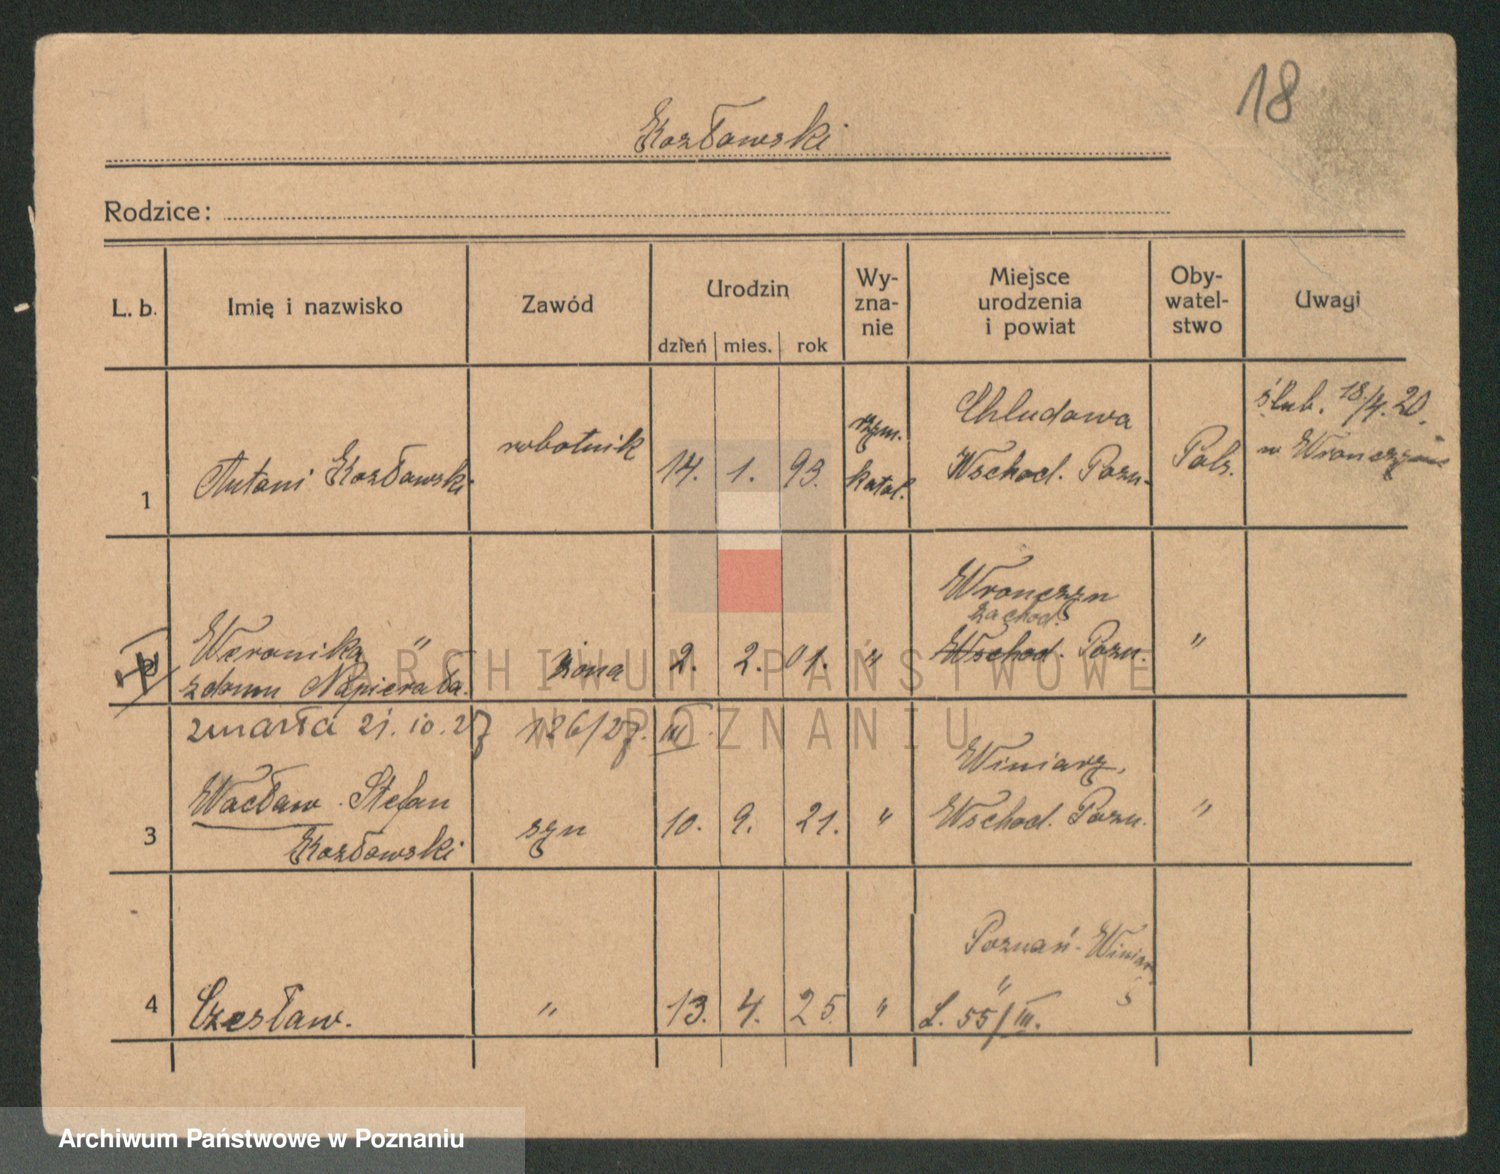 18
Kozłowski
Rodzice:
L. b.
Imię i nazwisko
Zawód
Urodzin
dzień
mies.
rok
Wy-
zna-
nie
Miejsce
urodzenia
i powiat
Oby-
watel-
stwo
Uwagi
1
Antoni Kozłowski
robotnik
14. 1. 93.
rzym.
katol.
Chludowa
Wschod. Pozn.
Pols.
ślub. 18/4. 20.
w Wronczynie
2
Weronika "
z domu Napierała
żona
2. 2. 01.
"
Wronczyn
zachod.
Wschod. Pozn.
"
zmarła 21. 10. 27 186/27. III.
3
Wacław Stefan
Kozłowski
syn
10. 9. 21.
"
Winiary,
Wschod. Pozn.
"
4
Czesław.
"
13. 4. 25.
"
Poznań-Winiary
"
L. 55/III.
ARCHIWUM PAŃSTWOWE
W POZNANIU
Archiwum Państwowe w Poznaniu